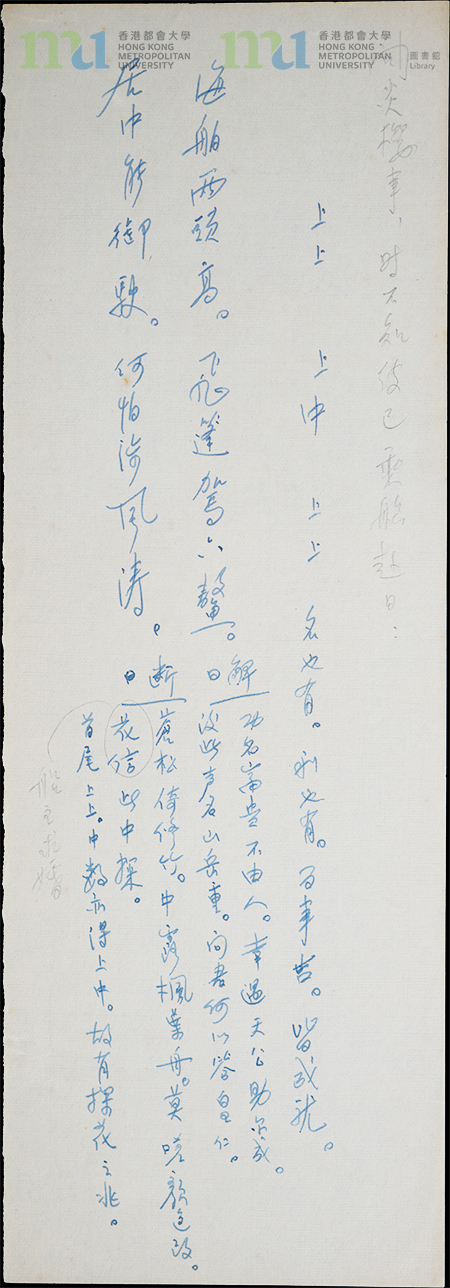 香港都會大學
HONG KONG
METROPOLITAN
UNIVERSITY
香港都會大學
HONG KONG
METROPOLITAN
UNIVERSITY
圖書館
Library
炎櫻事，時不知彼已乘船赴日：
上上 上中 上上 名也有。利也有。百事吉。皆成就。
海船兩頭高。下水篷駕六鰲。
居中能御駛。何怕浪風濤。
解曰
功名富貴不由人。幸遇天公助尔成。
沒些声名山岳重。向君何以答皇仁。
断曰
蒼松倚修竹。中露楓葉丹。莫嗟顏色改。
花信此中探。
首尾上上。中數亦得上中。故有探花之兆。
船主求婚